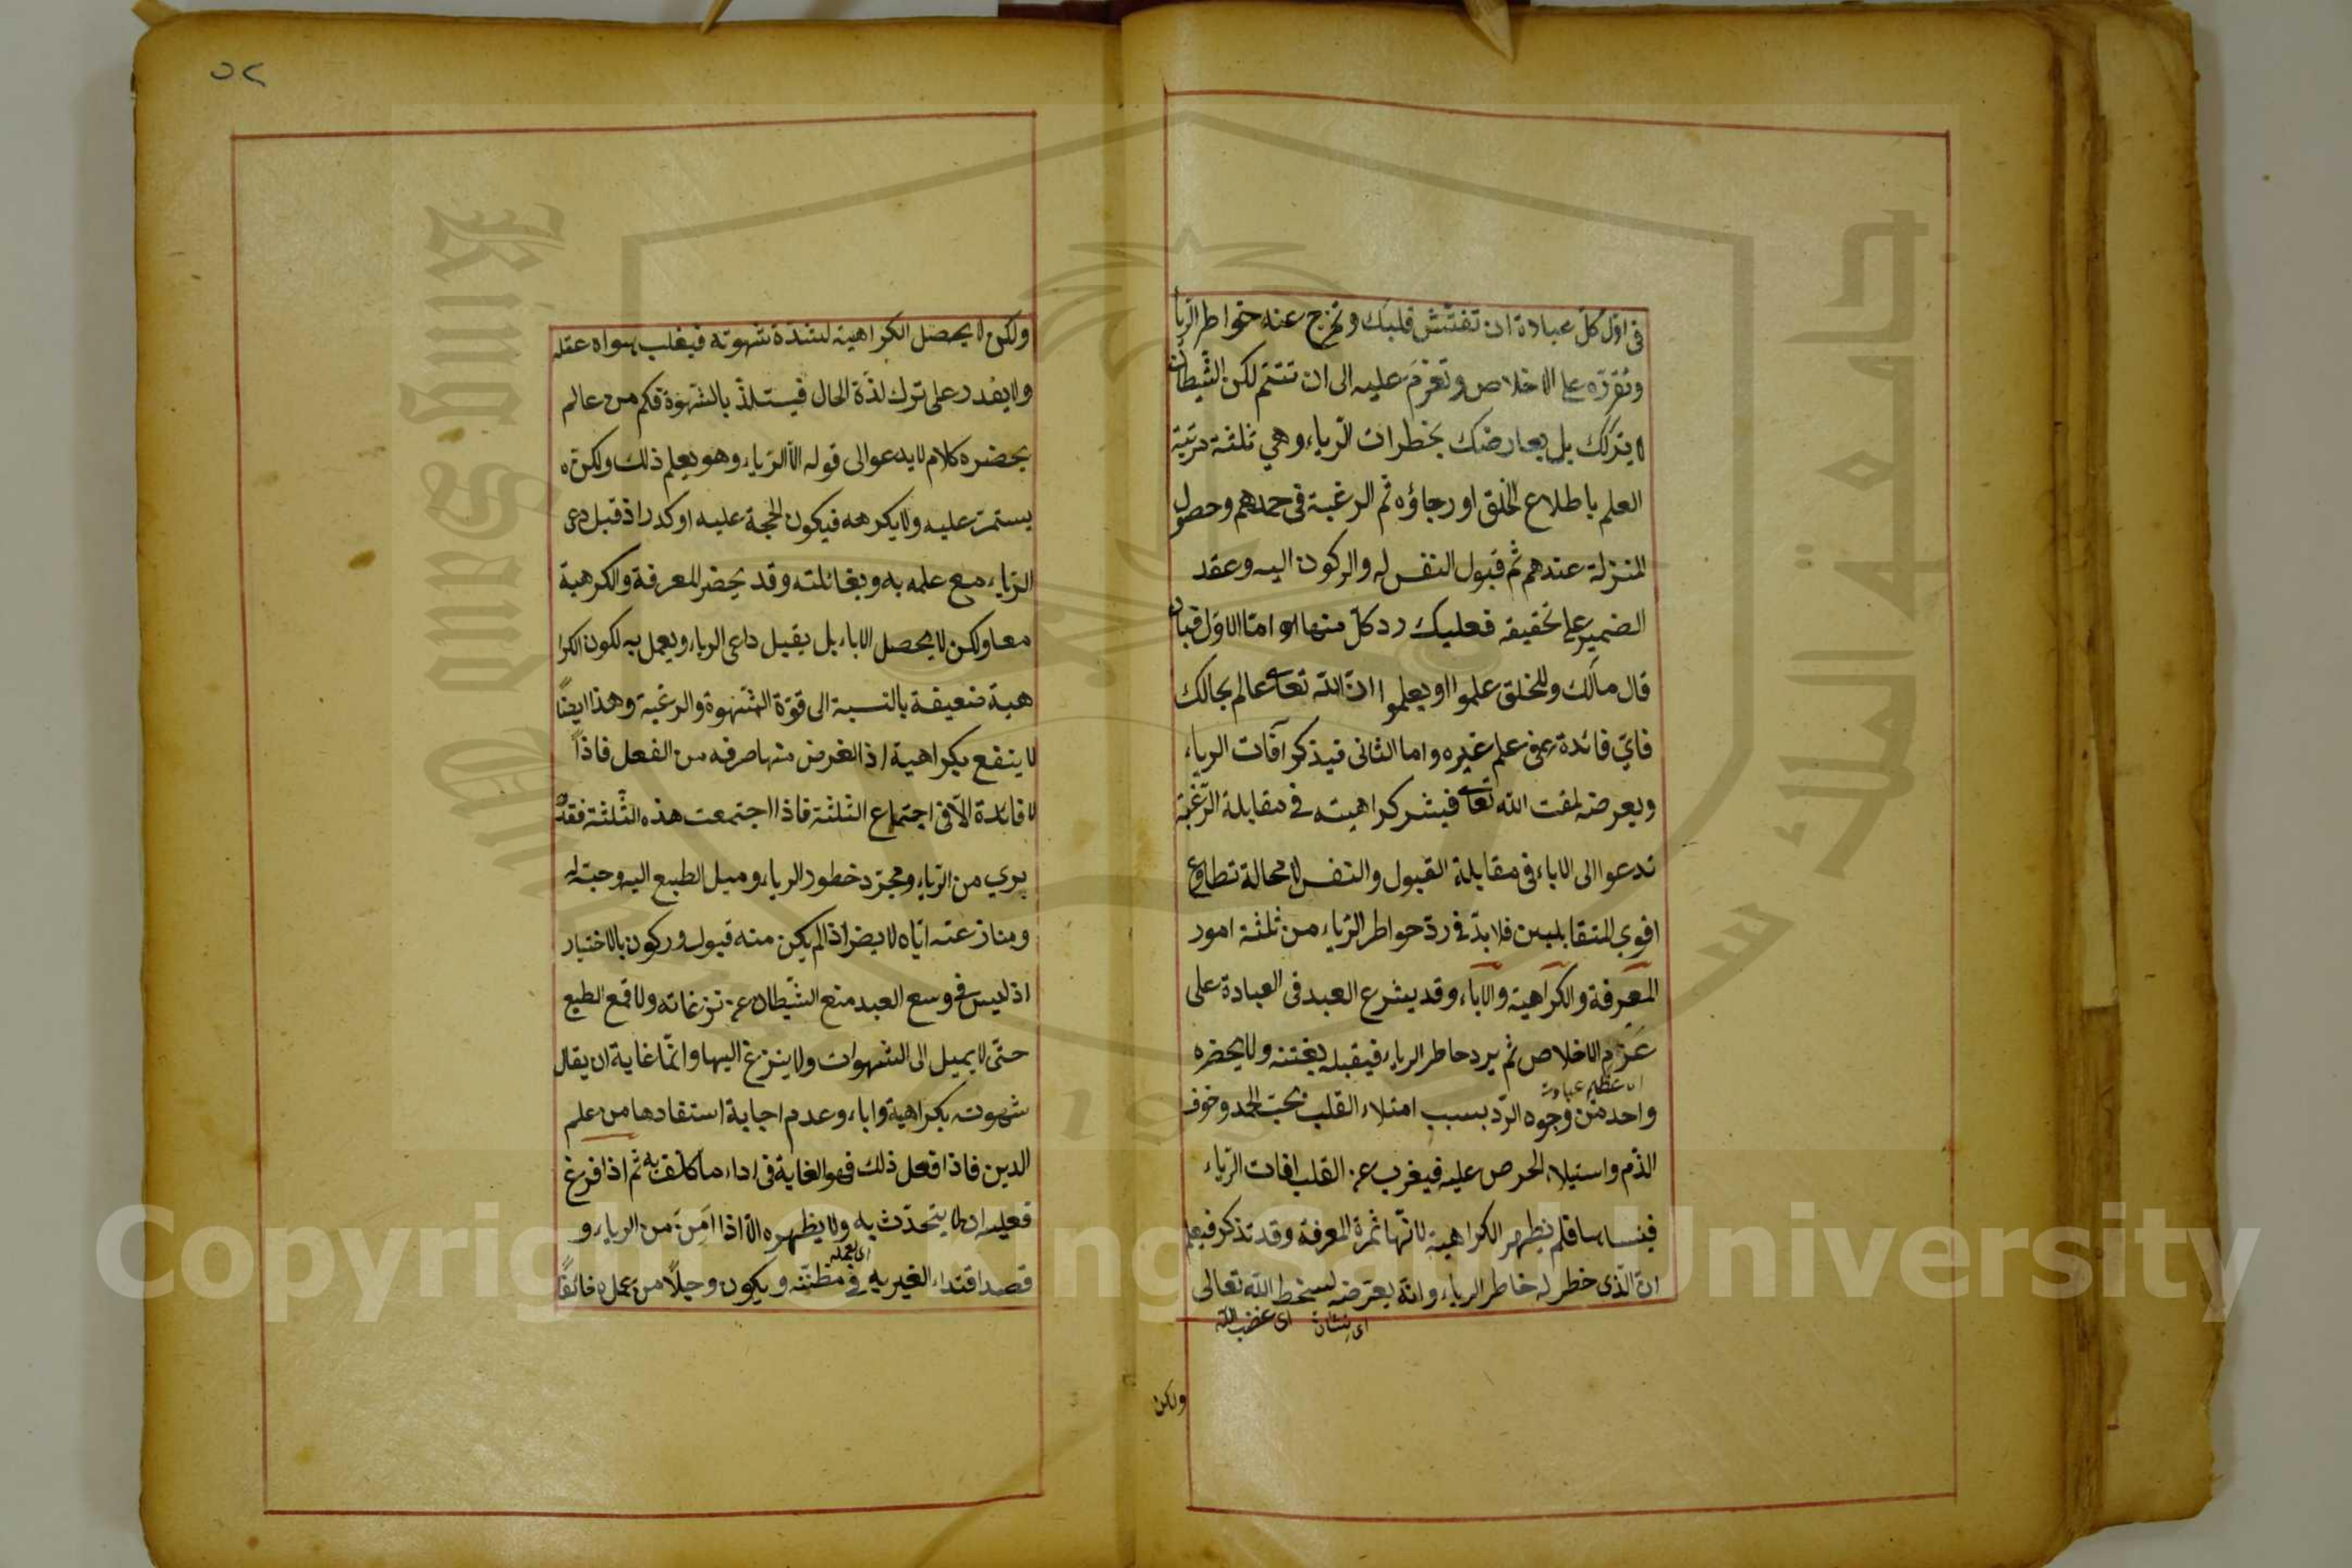 في اوّل كلّ عبادة ان تفتّش قلبك وتخرج عنه خواطر الريا
وتقرّره على الاخلاص وتعزم عليه الى ان تتمّ لكن الشّيطان
لا يتركك بل يعارضك بخطرات الرّياء وهي ثلثة مرتبة
العلم باطلاع الخلق او رجاؤه ثم الرغبة في حمدهم وحصول
المنزلة عندهم ثم قبول النفس له والركون اليه وعقد
الضمير على تحقيقه فعليك رد كلّ منها امّا الاوّل فبان
قال مالك وللخلق علموا او يعلموا انّ الله تعالى عالم بحالك
فايّ فائدة في علم غيره واما الثاني فيذكر آفات الرياء
وبعرضه لمقت الله تعالى فيثير كراهيته في مقابلة الرّغبة
تدعوا الى الاباء في مقابلة القبول والنفس لا محالة تطاوع
اقوي المتقابلين فلا بدّ في ردّ خواطر الرّياء من ثلثة امور
المعرفة والكراهية والاباء وقد يشرع العبد في العبادة على
عزم الاخلاص ثم يرد خاطر الرياء فيقبله بغتة ولا يحضره
واحد من وجوه الردّ بسبب امتلاء القلب بحبّ الحمد وخوف
الذّم واستيلاء الحرص عليه فيغرب عن القلب افات الرّياء
فينساها فلم يظهر الكراهية لانّها ثمرة المعرفة وقد تذكر فيعلم
انّ الّذى خطر له خاطر الرياء وانّه يعرّضه لسخط الله تعالى
اى غضب الله
ولكن
٥٢
ولكن لا يحصل الكراهية لشدة شهوته فيغلب هواه عقله
ولا يقدر على ترك لذّة الحال فيستلذّ بالشّهوة فكم من عالم
يحضره كلام لا يدعو الى قوله الّا الرّياء وهو يعلم ذلك ولكنّه
يستمرّ عليه ولا يكرهه فيكون الحجة عليه اوكد اذ قبل داعى
الرّياء مع علمه به وبغائلته وقد يحضر المعرفة والكرهية
معا ولكن لا يحصل الاباء بل يقبل داعى الرياء ويعمل به لكون الكرا
هية ضعيفة بالنسبة الى قوّة الشّهوة والرغبة وهذا ايضاً
لا ينتفع بكراهية اذ الغرض منها صرفه من الفعل فاذاً
لا فائدة الّا في اجتماع الثلثة فاذا اجتمعت هذه الثّلثة فقد
بري من الرّياء ومجرّد خطور الرياء وميل الطبع اليه وحبّه له
ومنازعته ايّاه لا يضر اذا لم يكن منه قبول وركون بالاختيار
اذ ليس في وسع العبد منع الشّيطان عن نزغاته ولا قمع الطبع
حتّى لا يميل الى الشهوات ولا ينزغ اليها وانّما غاية ان يقال
شهوته بكراهية واباء وعدم اجابة استفادها من علم
الدين فاذا فعل ذلك فهو الغاية في اداء ما كلّف به ثم اذا فرغ
فعليه ان لا يتحدّث به ولا يظهره الّا اذا امن من الرياء و
اى بعمله
قصد اقتداء الغير به في مظنّته ويكون وجلاً من عمله خائفاً